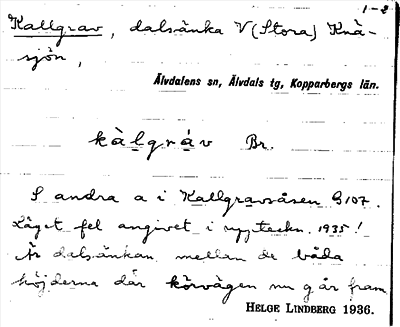 1-2
Kallgrav, dalsänka V (Stora) Knä-
sjön,
Älvdalens sn, Älvdals tg, Kopparbergs län.
kàlgráv Br.
S andra a i Kallgravsåsen G107.
Läget fel angivet i uppteckn. 1935!
Är dalsänkan mellan de båda
höjderna där körvägen nu går fram
HELGE LINDBERG 1936.